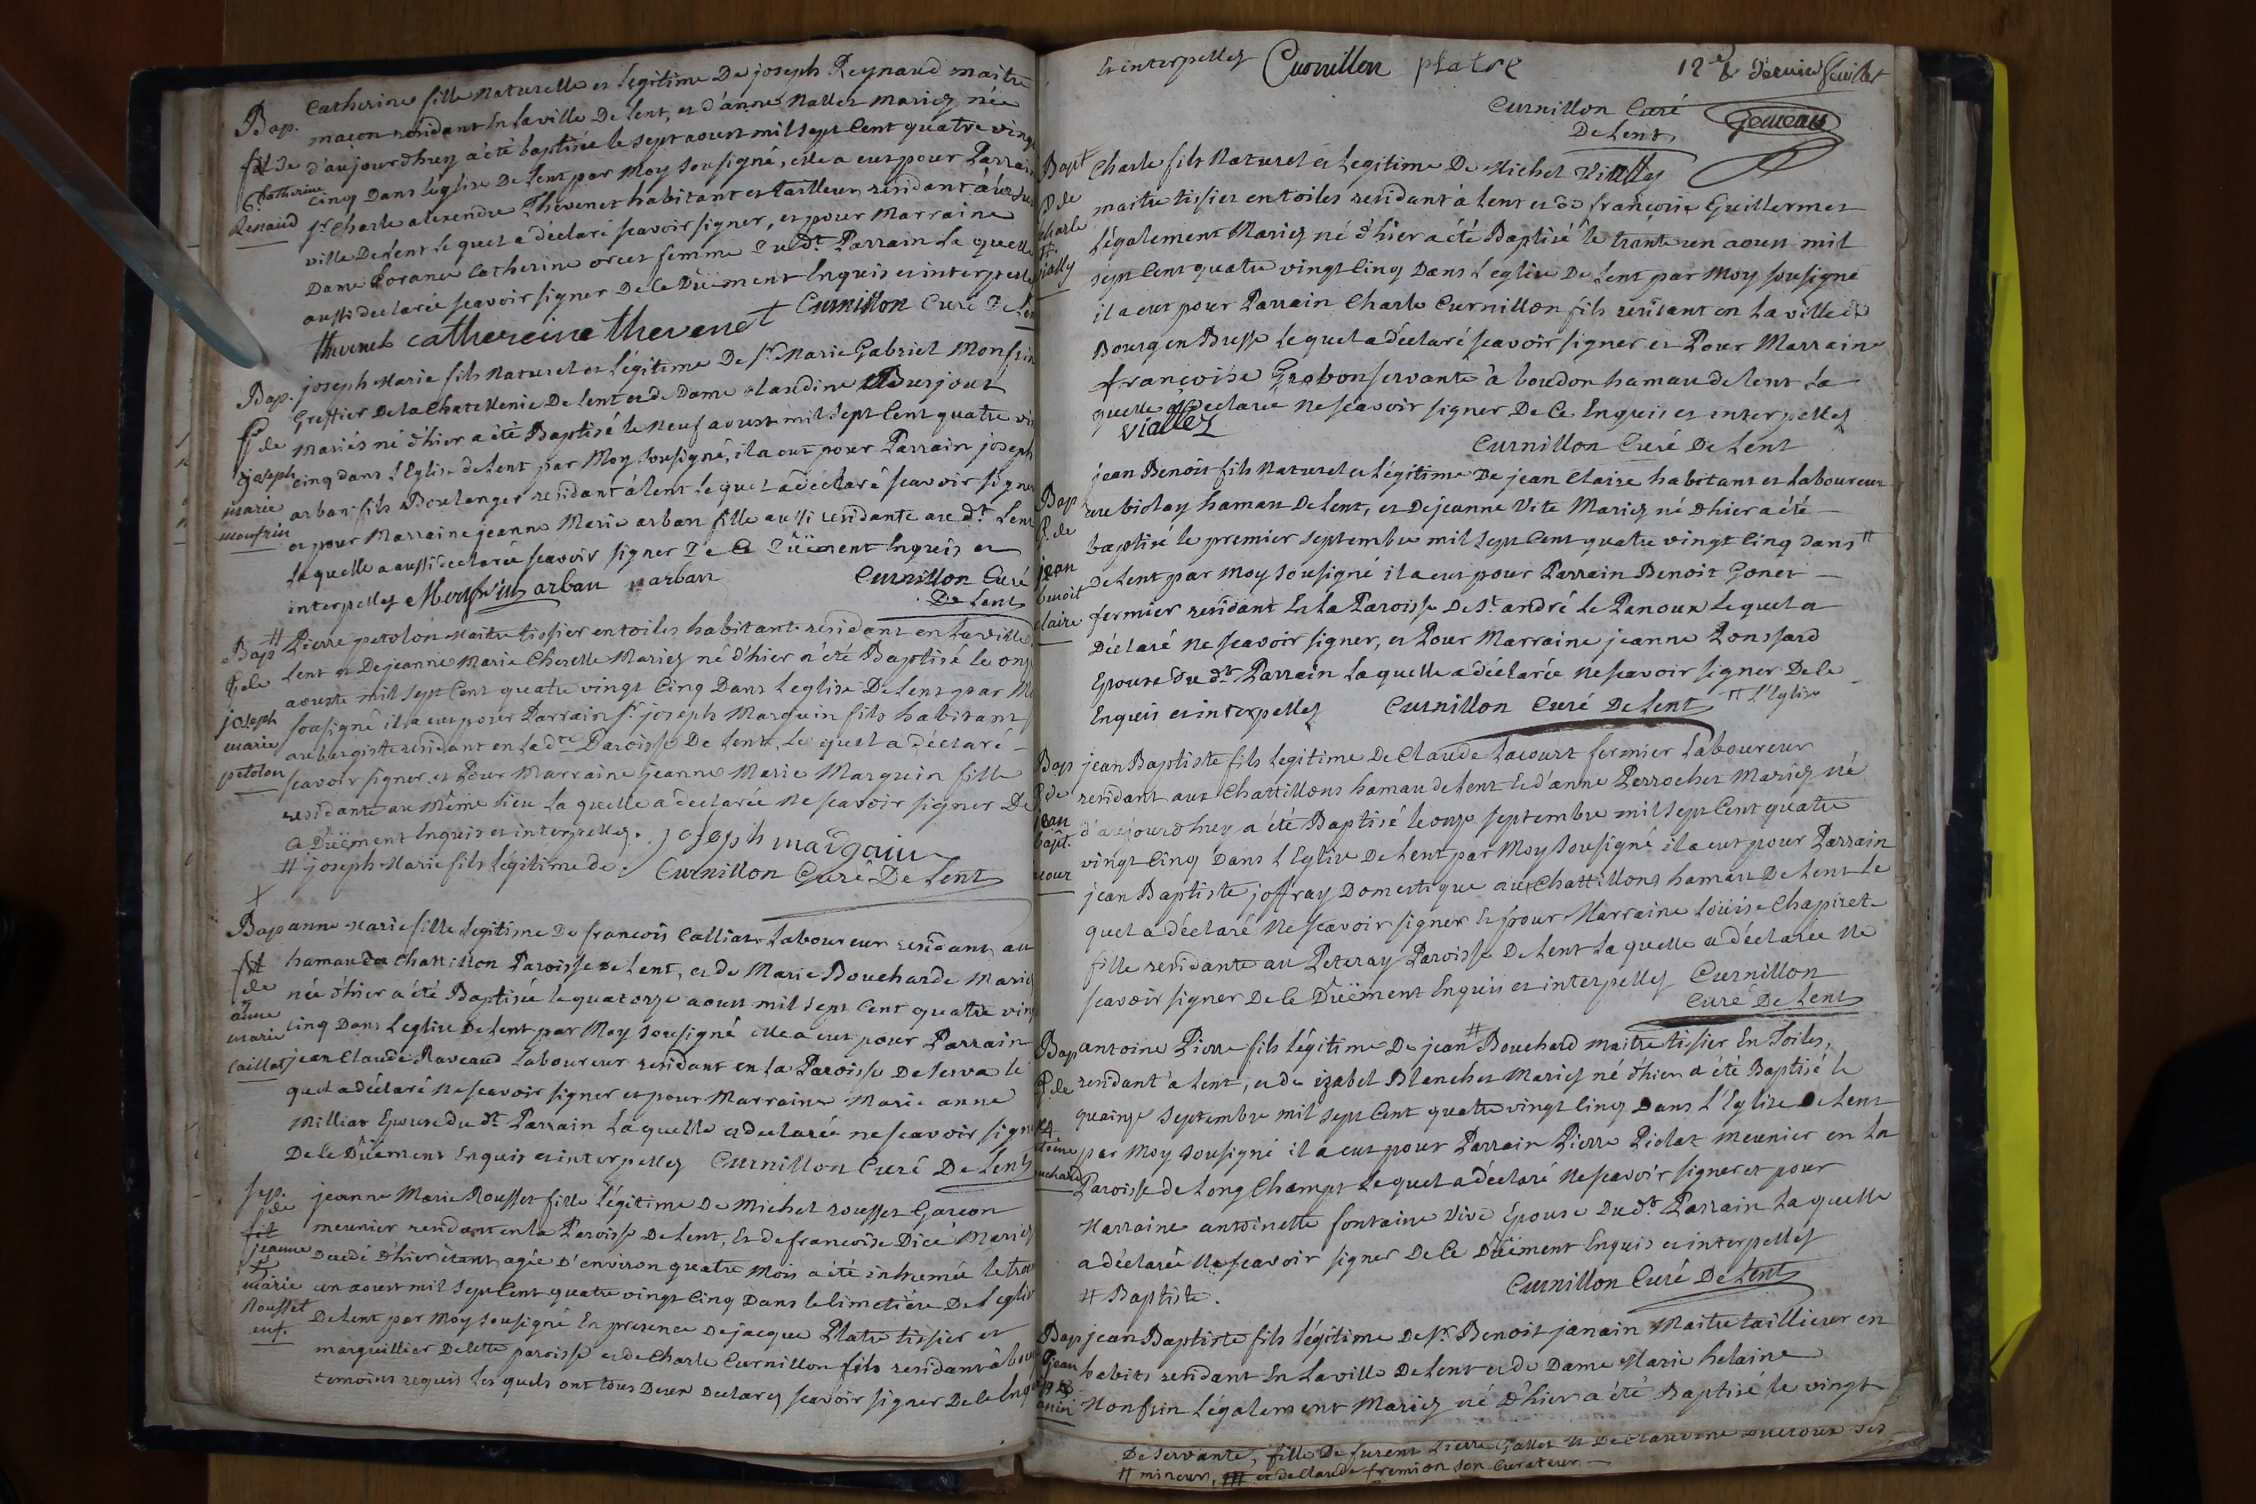 Bap.
fil de
Catherine
Renaud
Catherine fille naturelle et legitime De joseph Reynaud maitre
maçon residant En la ville De Lent, et d'anne nallet mariez née
d'aujourdhuy a été baptisée le sept aoust mil sept Cent quatre vingt
Cinq Dans l'eglise De Lent par Moy Sousigné, elle a eut pour Parrain
sr Charle alexendre Thevenet habitant et tailleur residant
ville De Lent le quel a declaré scavoir signer, et pour Marraine
Dame Catherine orcet femme Du dt Parrain La quelle
aussi declarée scavoir signer De Ce Düement Enquis et interpellé
thevenet catherine thevenet Curnillon Curé De Lent
Bap.
f de
joseph
marie
monfrin
joseph Marie fils Naturel et Légitime De sr Marie Gabriel Monfrin
Greffier De la Chatellenie De Lent et de Dame Claudine Burjout
Mariés né d'hier a été Baptisé le neuf aoust mil sept Cent quatre vin
cinq dans L'Eglise de Lent par Moy Sousigné, il a eut pour Parrain joseph
arban fils Boulanger residant à Lent le quel a déclaré scavoir signer
et pour Marraine jeanne Marie arban fille aussi residante au dt Lent
La quelle a aussi declarée scavoir signer De Ce Düement Enquis et
interpellez Monfrin arban arban Curnillon Curé
De Lent
Bap
f de
joseph
marie
petolon
# Pierre petolon Maitre tissier en toiles habitant residant en La ville
Lent et De jeanne Marie Cherelle Mariez né d'hier a été Baptisé le onze
aoust mil sept Cent quatre vingt Cinq Dans L'eglise De Lent par Moy
sousigné il a eut pour Parrain sr joseph Marguin fils habitant
aubergiste residant en La dte Paroisse De Lent, Le quel a déclaré
scavoir signer et Pour Marraine jeanne Marie Marguin fille
residante au même Lieu La quelle a declarée ne scavoir signer De
Ce Düement Enquis et interpellez. joseph marguin
# joseph Marie fils Légitime de. Curnillon Curé De Lent
Bap
fil
de
anne
marie
Caillat
anne Marie fille Legitime De francois Calliat Laboureur residant au
hamau de Chattillon Paroisse de Lent, et de Marie Bouchard Mariez
née d'hier a été Baptisée le quatorze aoust mil sept Cent quatre vingt
Cinq Dans L'eglise De Lent par Moy Sousigné elle a eut pour Parrain
jean Claude Raveaud Laboureur residant en La Paroisse De Servas le
quel a déclaré ne scavoir signer et pour Marraine Marie anne
Milliat Epouse du dt Parrain La quelle a declarée ne scavoir signer
De Ce Düement Enquis et interpellez Curnillon Curé De Lent
Sep.
de
fil
jeanne
marie
Rousset
enf.
jeanne Marie Rousset fille Légitime De Michel rousset Garcon
meunier residant en La Paroisse De Lent, Et de francoise Dicé Mariez
Decedé d'hier étant agée D'environ quatre Mois a été inhumée le trente
un aoust mil sept Cent quatre vingt Cinq Dans le Cimetière De L'eglise
De Lent par Moy Sousigné En presence De jacque Platre tissier et
marguillier De Cette paroisse et de Charle Curnillon fils residant à bourg
temoins requis Les quels ont tous Deux declarez scavoir signer De Ce Enquis
Et interpellez Curnillon platre 12e & dernier feuillet
Curnillon Curé
De Lent
Bapt
f de
Charle
Vially
Charle fils Naturel et Legitime De Michel Vially
maitre tissier en toiles residant à Lent et de francoise Guillermet
Légalement Mariez né d'hier a été Baptisé le trante un aoust mil
sept Cent quatre vingt Cinq Dans L'eglise De Lent par Moy sousigné
il a eut pour Parrain Charle Curnillon fils residant en La ville de
Bourg en Bresse Le quel a déclaré scavoir signer et Pour Marraine
francoise Grobon servante à Loudon hamau de Lent La
quelle a declarée ne scavoir signer De Ce Enquis et interpellez
viallez
Curnillon Curé De Lent
Bap
f. de
jean
benoit
claire
jean Benoit fils Naturel et Légitime De jean Claire habitant et Laboureur
au biolay hamau De Lent, et De jeanne Vite Mariez né d'hier a été
baptisé le premier septembre mil sept Cent quatre vingt Cinq dans #
De Lent par Moy Sousigné il a eut pour Parrain Benoit Gonet
fermier residant En La Paroisse De St andré Le Panoux Le quel a
Déclaré ne scavoir signer, et Pour Marraine jeanne Ponssard
Epouse du dt Parrain La quelle a déclarée ne scavoir signer De Ce
Enquis et interpellez Curnillon Curé De Lent # L'Eglise
Bap
f de
jean
bapt.
jean Baptiste fils Legitime De Claude Lacourt fermier Laboureur
residant aux Chattillons hamau de Lent Et d'anne Perrochet Mariez né
d'aujourdhuy a été Baptisé le onze septembre mil sept Cent quatre
vingt Cinq Dans L'Eglise De Lent par Moy Sousigné il a eut pour Parrain
jean Baptiste joffray Domestique aux Chattillons hamau De Lent Le
quel a déclaré ne scavoir signer Et pour Marraine Loüise Chapiret
fille residante au Peteray Paroisse De Lent La quelle a déclarée Ne
scavoir signer De Ce Düement Enquis et interpellez Curnillon
Curé De Lent
Bap
f de
antoine Pierre fils Légitime De jean # Bouchard Maitre tissier En Toiles,
residant a Lent, et de izabel Blanchet Mariez né d'hier a été Baptisé le
quainze septembre mil sept Cent quatre vingt Cinq Dans L'Eglise De Lent
par Moy Sousigné il a eut pour Parrain Pierre Piolat meunier en La
Paroisse de Long Champt Le quel a déclaré Ne scavoir signer et pour
Marraine antoinette fontaine vive Epouse Du dt Parrain La quelle
a déclarée Ne scavoir signer De Ce Düement Enquis et interpellez
Curnillon Curé De Lent
# Baptiste.
Bap
jean
jean Baptiste fils Légitime De sr Benoit janain Maitre taillieur en
habits residant En La ville De Lent et de Dame Marie helaine
Monfrin Légalement Mariez né D'hier a été Baptisé le vingt
De Servante, fille De furent Pierre Gallet et De Claudine
# mineurs, et de Claude fremion son Curateur